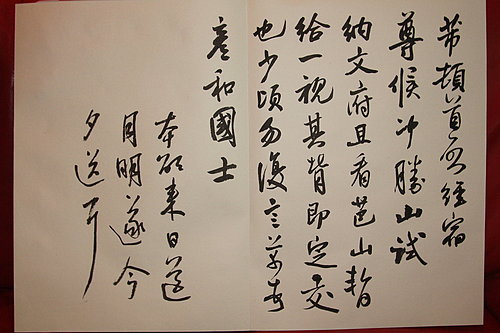 芾頓首經宿
尊候沖勝山試
納文府且看芭山暫
給一視其背即定交
也少頃勿復言芾
彥和國士
本欲來日送
月明遂今
夕送耳